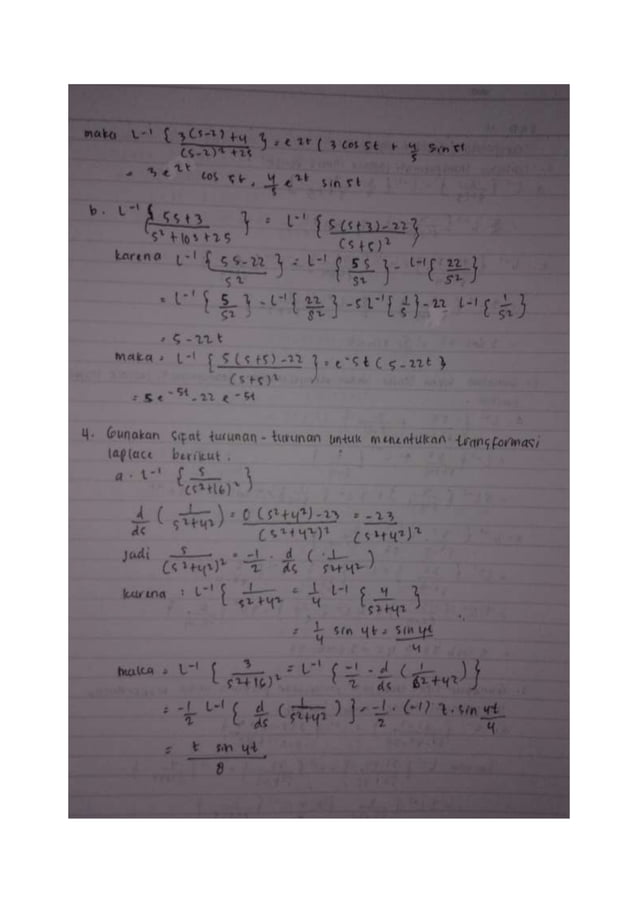 maka L-1 { 3(s-2)+4 / (s-2)²+25 } = e 2t ( 3 cos 5t + 4/5 sin 5t
= 3e 2t cos 5t + 4/5 e 2t sin 5t
b. L-1 { 5s+3 / s²+10s+25 } = L-1 { 5(s+3)-22 / (s+5)² }
karena L-1 { 5s-22 / s2 } = L-1 { 5s / s2 } - L-1 { 22 / s2 }
= L-1 { 5 / s2 } - L-1 { 22 / s2 } - 5L-1 { 1/s } - 22 L-1 { 1/s2 }
= 5-22t
maka = L-1 { 5(s+5)-22 / (s+5)² } = e-5t ( 5-22t }
= 5e-5t - 22 e-5t
4. Gunakan sifat turunan-turunan untuk menentukan transformasi
laplace berikut :
a. L-1 { s / (s²+16)² }
d/ds ( 1 / s²+42 ) = 0 (s²+42)-23 / (s²+42)² = -23 / (s²+42)2
Jadi s / (s²+42)² = -1/2 . d/ds ( 1 / s2+42 )
karena : L-1 { 1 / s2+42 = 1/4 L-1 { 4 / s2+42 }
= 1/4 sin 4t = sin 4t / 4
maka = L-1 { 3 / s2+16)² = L-1 { -1/2 - d/ds ( 1 / s2+42 ) }
= -1/2 L-1 { d/ds ( 1 / s2+42 ) } = -1/2 . (-1) t . sin 4t / 4
= t sin 4t / 8